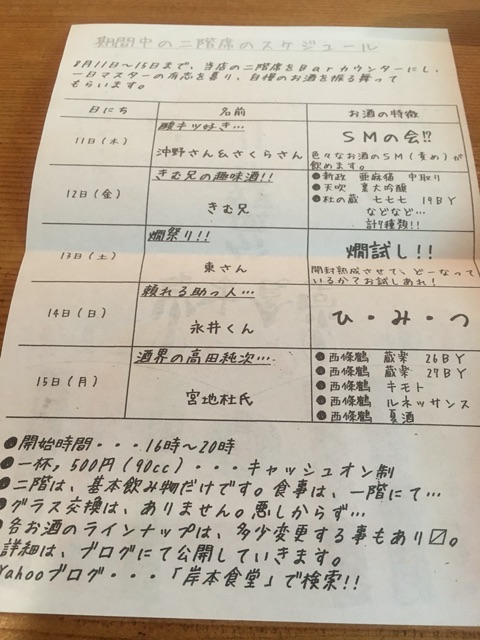 期間中の二階席のスケジュール
8月11日～15日まで、当店の二階席をBarカウンターにし、
一日マスターの有志を募り、自慢のお酒を振る舞って
もらいます。
日にち 名前 お酒の特徴
11日(木) 酸キツ好き… 沖野さん&さくらさん
SMの会!?
色々なお酒のSM(責め)が
飲めます。
12日(金) きむ兄の趣味酒!! きむ兄
●新政 亜麻猫 中取り
●天吹 裏大吟醸
●杜の蔵 七七七 19BY
などなど…
計7種類!!
13日(土) 燗祭り!! 東さん
燗試し!!
開封熟成させて、どーなって
いるか?お試しあれ!
14日(日) 頼れる助っ人… 永井くん
ひ・み・つ
15日(月) 酒界の高田純次… 宮地杜氏
●西條鶴 蔵楽 26BY
●西條鶴 蔵楽 27BY
●西條鶴 キモト
●西條鶴 ルネッサンス
●西條鶴 夏酒
●開始時間・・・16時～20時
●一杯,500円(90cc)・・・キャッシュオン制
●二階は、基本飲み物だけです。食事は、一階にて…
●グラス交換は、ありません。悪しからず…
●各お酒のラインナップは、多少変更する事もあり〼。
詳細は、ブログにて公開していきます。
Yahooブログ・・・「岸本食堂」で検索!!